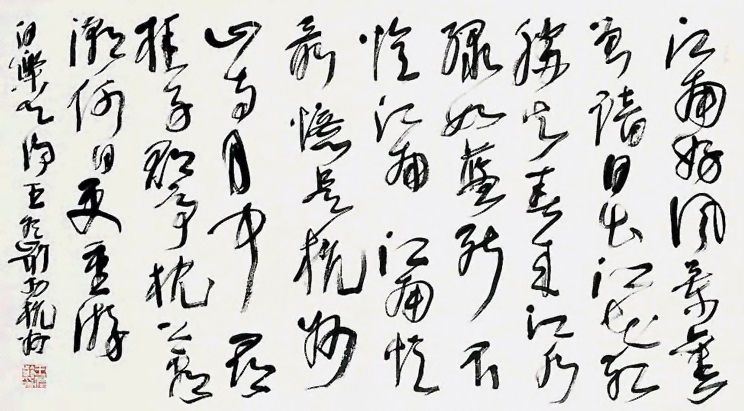 江南好风景舊
曾諳日出江花红
勝火春来江水
绿如藍能不
憶江南 江南憶
最憶是杭州
山寺月中 尋
桂子郡亭枕上看
潮何日更重游
白樂天词 王冬齡书杭州